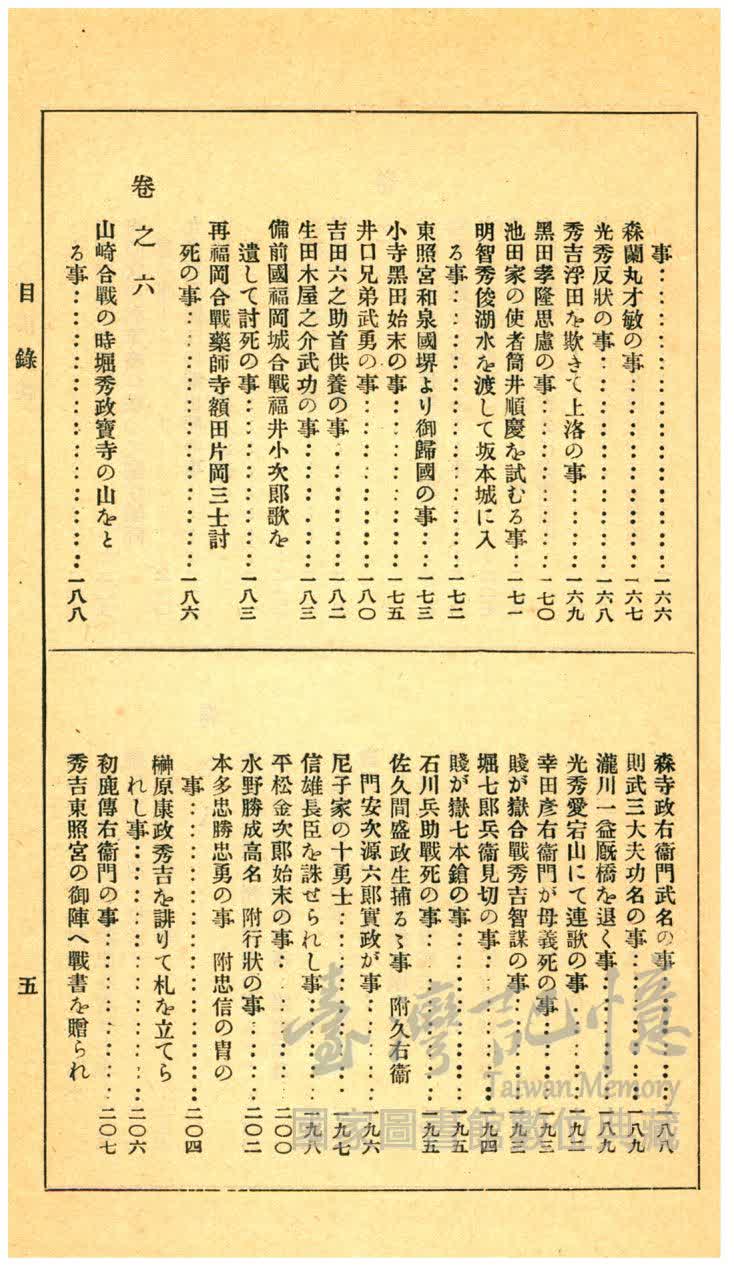 事……………………一六六
森蘭丸才敏の事……………………一六七
光秀反狀の事……………………一六八
秀吉浮田を欺きて上洛の事……………………一六九
黑田孝隆思慮の事……………………一七〇
池田家の使者筒井順慶を試むる事……一七一
明智秀俊湖水を渡して坂本城に入
る事……………………一七二
東照宮和泉國堺より御歸國の事……一七三
小寺黑田始末の事……………………一七五
井口兄弟武勇の事……………………一八〇
吉田六之助首供養の事……………………一八二
生田木屋之介武功の事……………………一八三
備前國福岡城合戰福井小次郎歌を
遺して討死の事……………………一八三
再福岡合戰藥師寺額田片岡三士討
死の事……………………一八六
卷之六
山崎合戰の時堀秀政寶寺の山をと
る事……………………一八八
森寺政右衞門武名の事……………………一八八
則武三大夫功名の事……………………一八九
瀧川一益厩橋を退く事……………………一八九
光秀愛宕山にて連歌の事……………………一九二
幸田彥右衞門が母義死の事……………………一九三
賤が嶽合戰秀吉智謀の事……………………一九三
堀七郎兵衞見切の事……………………一九四
賤が嶽七本鎗の事……………………一九五
石川兵助戰死の事……………………一九五
佐久間盛政生捕るゝ事　附久右衞
門安次源六郎實政が事……………………一九六
尼子家の十勇士……………………一九七
信雄長臣を誅せられし事……………………一九八
平松金次郎始末の事……………………二〇〇
水野勝成高名　附行狀の事……………………二〇二
本多忠勝忠勇の事　附忠信の冑の
事……………………二〇四
榊原康政秀吉を誹りて札を立てら
れし事……………………二〇六
初鹿傳右衞門の事……………………二〇七
秀吉東照宮の御陣へ戰書を贈られ
目錄
五
臺灣記憶
Taiwan Memory
國家圖書館數位典藏